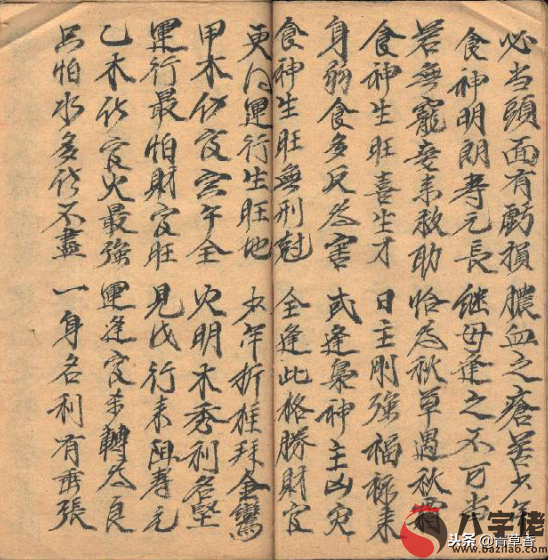 必当頭面有虧損 膿血之瘡少年
食神明朗寿元長 継母逢之不可当
若無寵妾来救助 恰为秋草遇秋霜
食神生旺喜生才 日主刚強福禄来
身弱食多反为害 或逢梟神主凶灾
食神生旺無刑尅 全逢此格勝財官
更得運行生旺地 少年折桂拜金鸞
甲木伤官寅午全 火明木秀利名堅
運行最怕財官旺 見戊行来阻寿元
乙木伤官火最強 運逢官杀轉为良
只怕水多伤不盡 一身名利有乖張
八字佬
www.bazilao.com
头条 @青草香